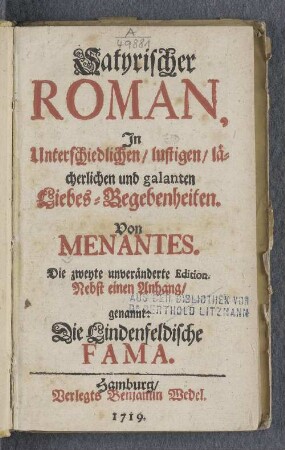 A
49881
Satyrischer
ROMAN,
In
Unterschiedlichen/ lustigen/ lä-
cherlichen und galanten
Liebes-Begebenheiten.
Von
MENANTES.
Die zweyte unveränderte Edition.
Nebst einen Anhang/
AUS DER BIBLIOTHEK VON
DR BERTHOLD LITZMANN
genannt:
Die Lindenfeldische
FAMA.
Hamburg/
Verlegts Benjamin Wedel.
1719.